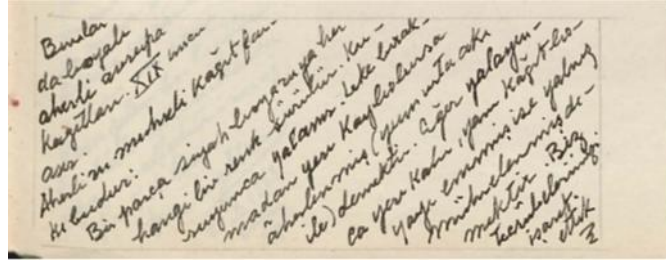 Bunlar
da boyalı
aherli avrupa
kağıtları. XIX uncu
asır.
Aherli mühreli kâğıt far-
kı budur:
Bir parça siyah boyaya her
hangi bir renk sürülür. Ku-
ruyunca yalanır. Leke bırak-
madan yeri kaybolursa
âherlenmiş (yumurta akı
ile) demektir. Eğer yalayın-
ca yeri kalır, yani kâğıt bo-
yayı emmiş ise yalnız
mührelenmiş de-
mektir. Biz
tecrübelerimizi
işaret
ettik